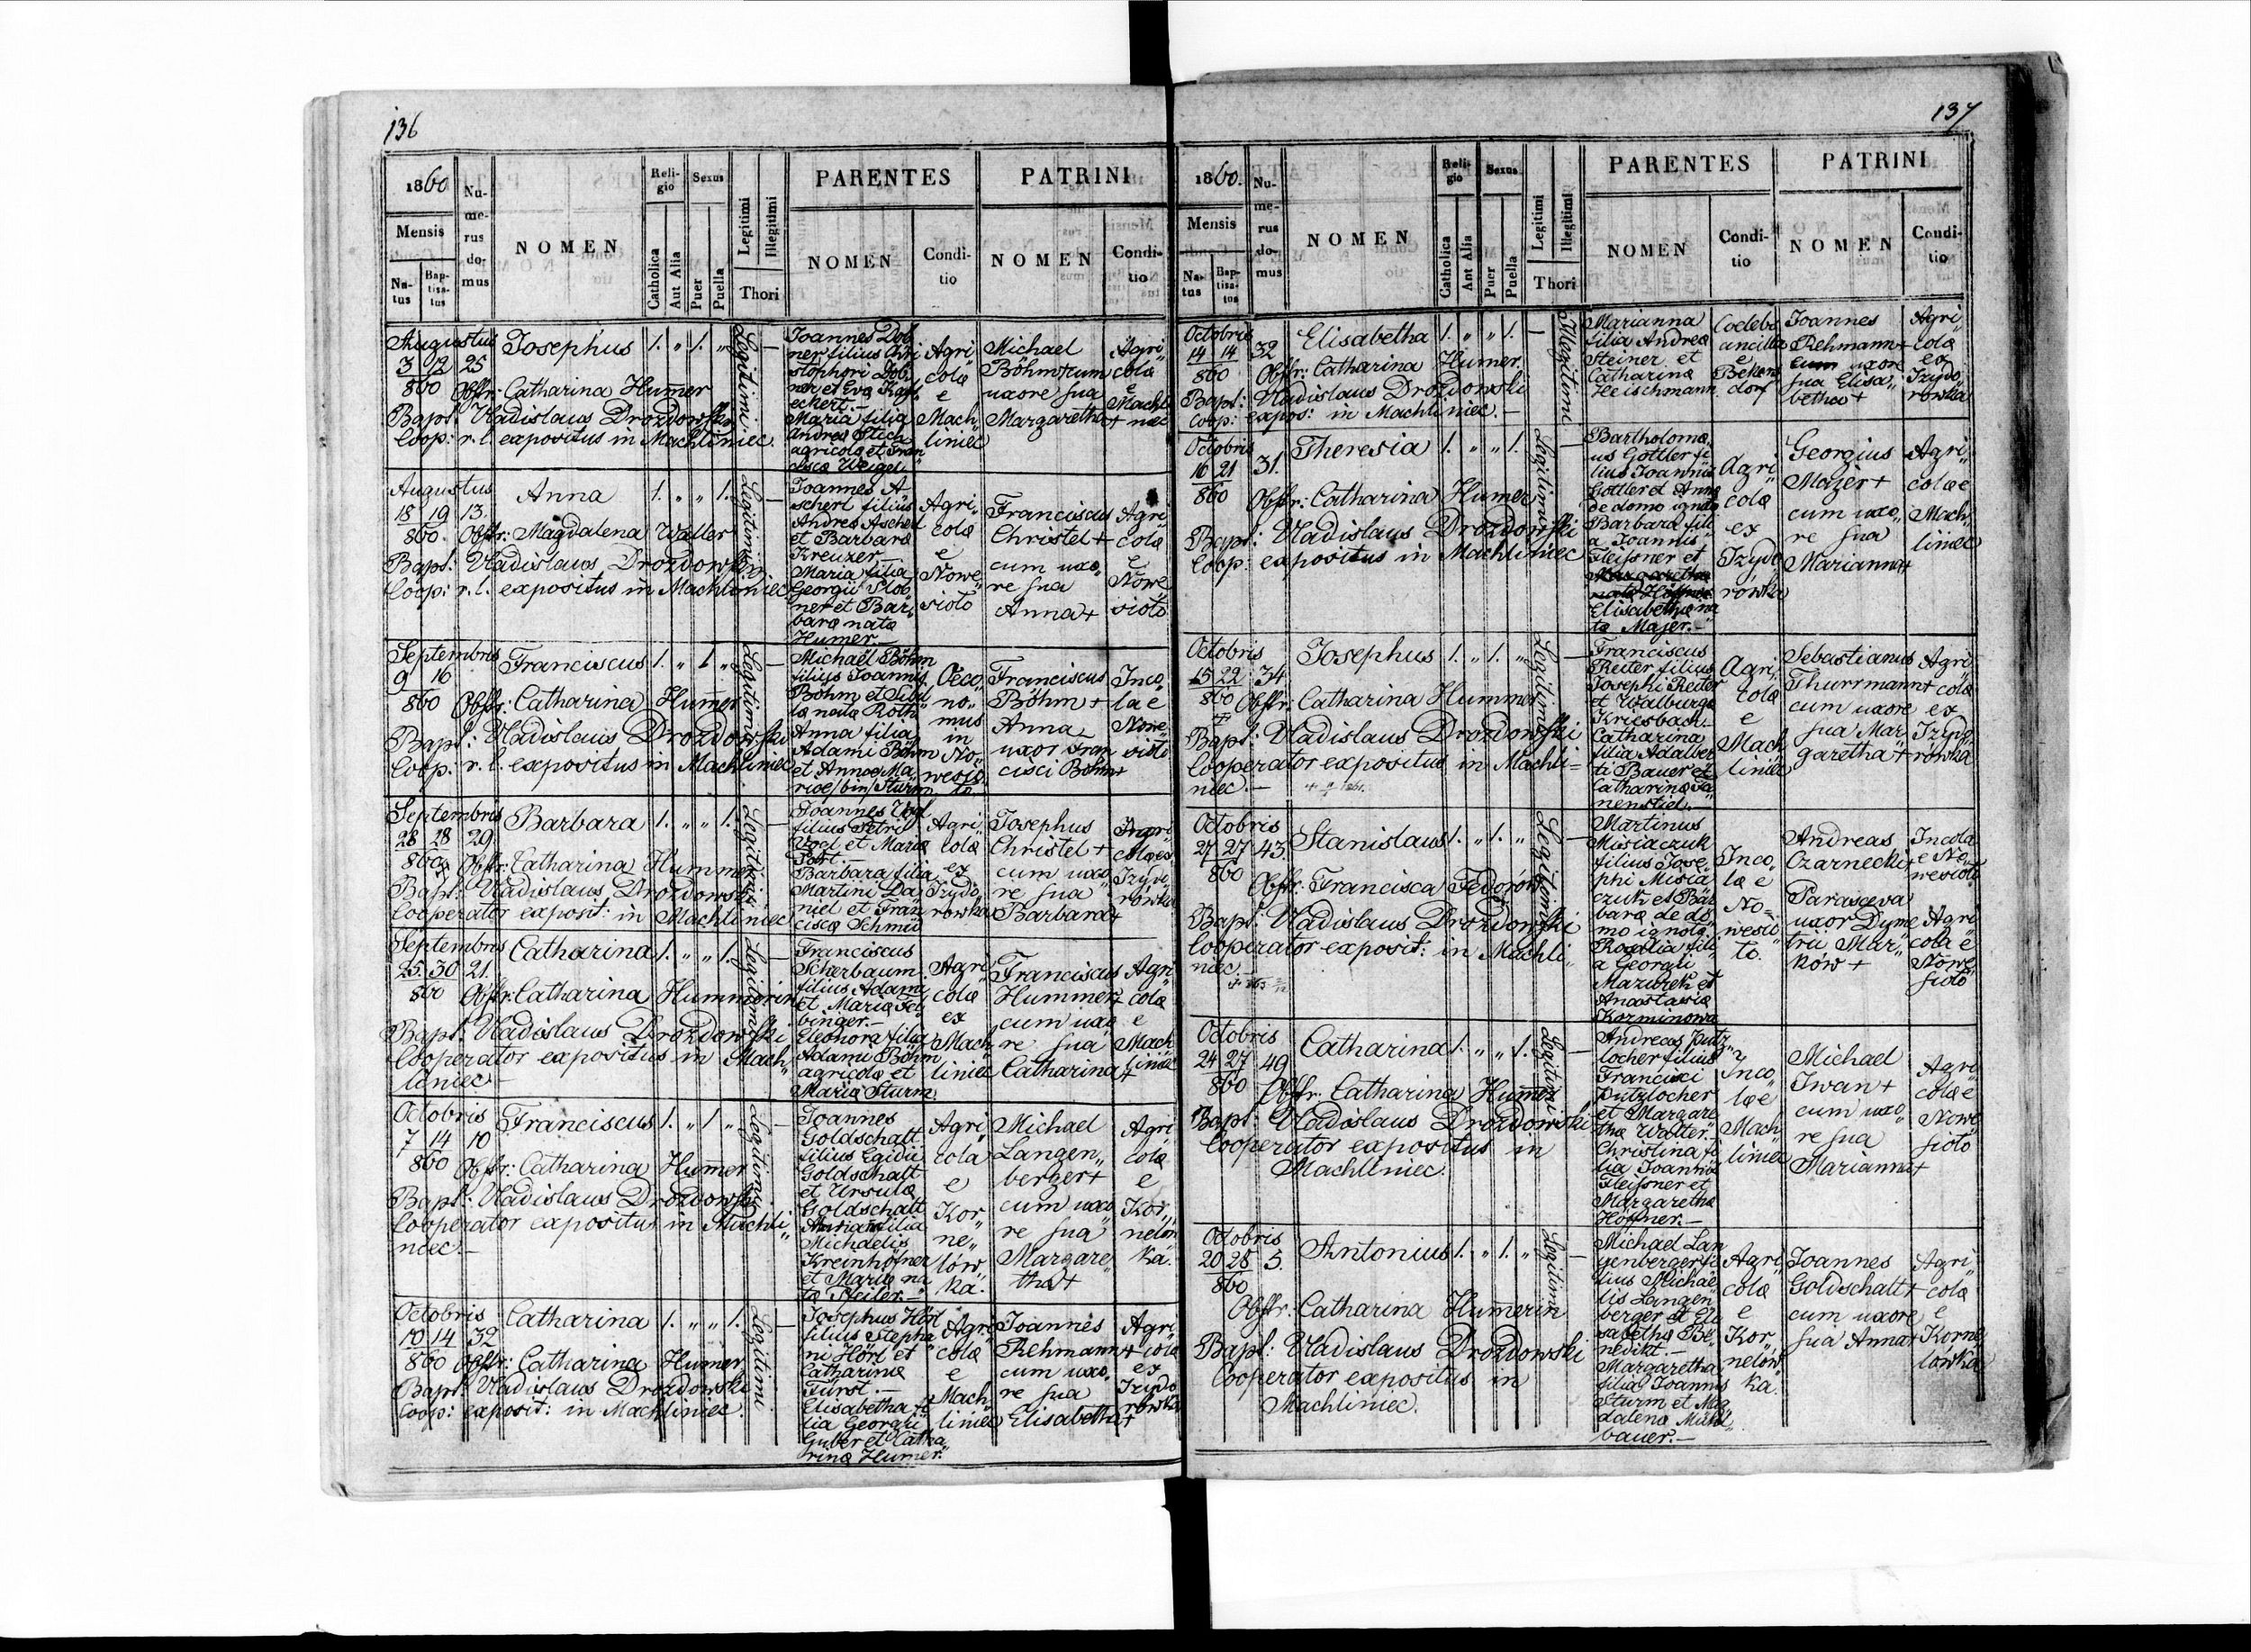 136
1860
Mensis
Natus
Baptisatus
Numerus domus
NOMEN
Religio
Catholica
Aut Alia
Sexus
Puer
Puella
Legitimi
Illegitimi
Thori
PARENTES
NOMEN
Conditio
PATRINI
NOMEN
Conditio
Augustus
3 12 25
860
Josephus 1. " 1. "
Legitimi
Obstr: Catharina Humer
Bapt: Vladislaus Drozdowski
Coop: r. l. expositus in Machliniec.
Joannes Dob
ner filius Chri
stophori Dob,
ner et Eva
eckert.—
Maria filia
Andrea
agricola et Fran
cisca Weigel
Agri
cola
e
Mach
liniec
Michael
Böhm cum
uxore sua
Margaretha+
Agri
cola
e
Machli
niec
Augustus
18 19 13.
860.
Anna 1. " " 1.
Legitimi
Obstr: Magdalena Walter
Bapt: Vladislaus Drozdowski
Coop: r. l. expositus in Machliniec
Joannes A
scherl filius
Andrea Ascherl
et Barbara
Kreuzer—
Maria filia
Georgii
ner et Bar,
bara nata
Humer.—
Agri
cola
e
Nowe
siolo
Franciscus
Christel+
cum uxo,
re sua
Anna+
Agri
cola
e
Nowe
siolo
Septembris
9 16
860
Franciscus 1. " 1. "
Legitimi
Obstr: Catharina Humer
Bapt: Vladislaus Drozdowski
Coop: r. l. expositus in Machliniec.
Michaël Böhm
filius Joannis
Böhm et Sibil
la nata Roth
Anna filia
Adami Böhm
et Anna Ma,
riae /bin/ Sturm
Oeco
no"
mus
in
No,
wesio
lo
Franciscus
Böhm+
Anna
uxor Fran
cisci Böhm+
Inco
la e
Nowe
siolo
Septembris
28 28 29.
860
Barbara 1. " " 1.
Legitimi
Obstr: Catharina Hummer
Bapt: Vladislaus Drozdowski
Cooperator exposit: in Machliniec
Joannes Vogl
filius Petri
Vogl et Maria
Post.—
Barbara filia
Martini Da
niel et Fran
cisca Schmid
Agri
cola
ex
Izydo
rowka
Josephus
Christel+
cum uxo
re sua
Barbara+
Agri
cola ex
Izydo
rowka
Septembris
25. 30 21.
860
Catharina 1. " " 1.
Legitimi
Obstr: Catharina Hummerin
Bapt: Vladislaus Drozdowski
Cooperator expositus in Mach"
liniec—
Franciscus
Scherbaum
filius Adami
et Maria Fel
binger.—
Eleonora filia
Adami Böhm
agricola et
Maria Sturm
Agri
cola
ex
Mach
liniec
Franciscus
Hummer+
cum uxo
re sua
Catharina+
Agri
cola
e
Mach
liniec
Octobris
7 14 10
860
Franciscus 1. " 1 "
Legitimi
Obstr: Catharina Humer
Bapt: Vladislaus Drozdowski
Cooperator expositus in Machli"
niec.—
Joannes
Goldschalt
filius Egidii
Goldschalt
et Ursula
Goldschalt
filia
Michaelis
Kreinhöfner
et Maria na
ta
Agri
cola
e
Kor"
ne"
lów
ka.
Michael
Langen"
berger+
cum uxo
re sua
Margare"
tha+
Agri
cola
e
Kor,
nelów
ka.
Octobris
10 14 32
860
Catharina 1. " " 1.
Legitimi
Obstr: Catharina Humer
Bapt: Vladislaus Drozdowski
Coop: exposit: in Machliniec.
Josephus Hörl
filius Stepha
ni Hörl et
Catharina
Fürst.—
Elisabetha fi
lia Georgii
Guber et Catha
rina Humer.
Agri
cola
e
Mach
liniec
Joannes
Rehmann+
cum uxo,
re sua
Elisabetha+
Agri
cola
ex
Izydo
rowka
137
1860.
Mensis
Natus
Baptisatus
Numerus domus
NOMEN
Religio
Catholica
Aut Alia
Sexus
Puer
Puella
Legitimi
Illegitimi
Thori
PARENTES
NOMEN
Conditio
PATRINI
NOMEN
Conditio
Octobris
14 14 32
860
Elisabetha 1. " " 1.
Illegitimi
Obstr: Catharina Humer.
Bapt: Vladislaus Drozdowski
Coop: expos: in Machliniec.—
Marianna
filia Andrea
Steiner et
Catharina
Heischmann.
Coelebs
ancilla
e
Beken
dorf
Joannes
Rehmann+
cum uxore
sua Elisa"
betha+
Agri
cola
ex
Izydo
rowka
Octobris
16 21 31.
860
Theresia 1. " " 1.
Legitimi
Obstr: Catharina Humer
Bapt: Vladislaus Drozdowski
Coop: expositus in Machliniec
Bartholomæ
us Gottler fi
lius Joannis
Gottler et Anna
de domo ignota
Barbara fili
a Joannis
Fleissner et
Margaretha
nata Höffner
Elisabetha na
ta Majer.—
Agri
cola
ex
Izydo
rówka
Georgius
Majer+
cum uxo,
re sua
Marianna+
Agri
cola e
Mach
liniec
Octobris
15 22 34
860
Josephus 1. " 1. "
Legitimi
Obstr: Catharina Hummer
Bapt: Vladislaus Drozdowski
Cooperator expositus in Machli=
niec.—
Franciscus
Reiter filius
Josephi Reiter
et Walburga
Kriesbach.—
Catharina
filia Adalber
ti Bauer et
Catharina
nenstiel.—
Agri,
cola
e
Mach
liniec
Sebastianus
Thurrmann+
cum uxore
sua Mar"
garetha+
Agri
cola
ex
Izydo
rowka
Octobris
27 27 43.
860
Stanislaus 1. " 1. "
Legitimi
Obstr: Francisca Fedorów
Bapt: Vladislaus Drozdowski
Cooperator exposit: in Machli"
niec.—
Martinus
Misiaczuk
filius Jose
phi Misia
czuk et Bar
bara de do
mo ignota
Rosalia fili
a Georgii
Mazurek et
Anastasia
Korminowa
Inco
la e
No=
wesio
lo.
Andreas
Czarnecki+
Parasceva
uxor Dyme
trii Mar"
ków+
Incola
e No
wesiolo
Agri
cola e
Nowe
siolo
Octobris
24 27 49
860
Catharina 1. " " 1.
Legitimi
Obstr: Catharina Humer
Bapt: Vladislaus Drozdowski
Cooperator expositus in
Machliniec.
Andreas Putz"
locher filius
Francisci
Putzlocher
et Margare
tha Walter.
Christina fi
lia Joannis
Fleissner et
Margaretha
Höffner.—
Inco
la e
Mach
liniec
Michael
Iwan+
cum uxo
re sua
Marianna+
Agri
cola e
Nowe
siolo
Octobris
20 28 5.
860
Antonius 1. " 1. "
Legitimi
Obstr: Catharina Humerin
Bapt: Vladislaus Drozdowski
Cooperator expositus in
Machliniec.
Michael Lan
genberger fi
lius Michae
lis Langen
berger et Eli
sabetha Be"
nedikt.—
Margaretha
filia Joannis
Sturm et Mag
dalena Mühl"
bauer.—
Agri
cola
e
Kor,
nelów
ka.
Joannes
Goldschalt+
cum uxore
sua Anna+
Agri"
cola
e
Korne
lówka